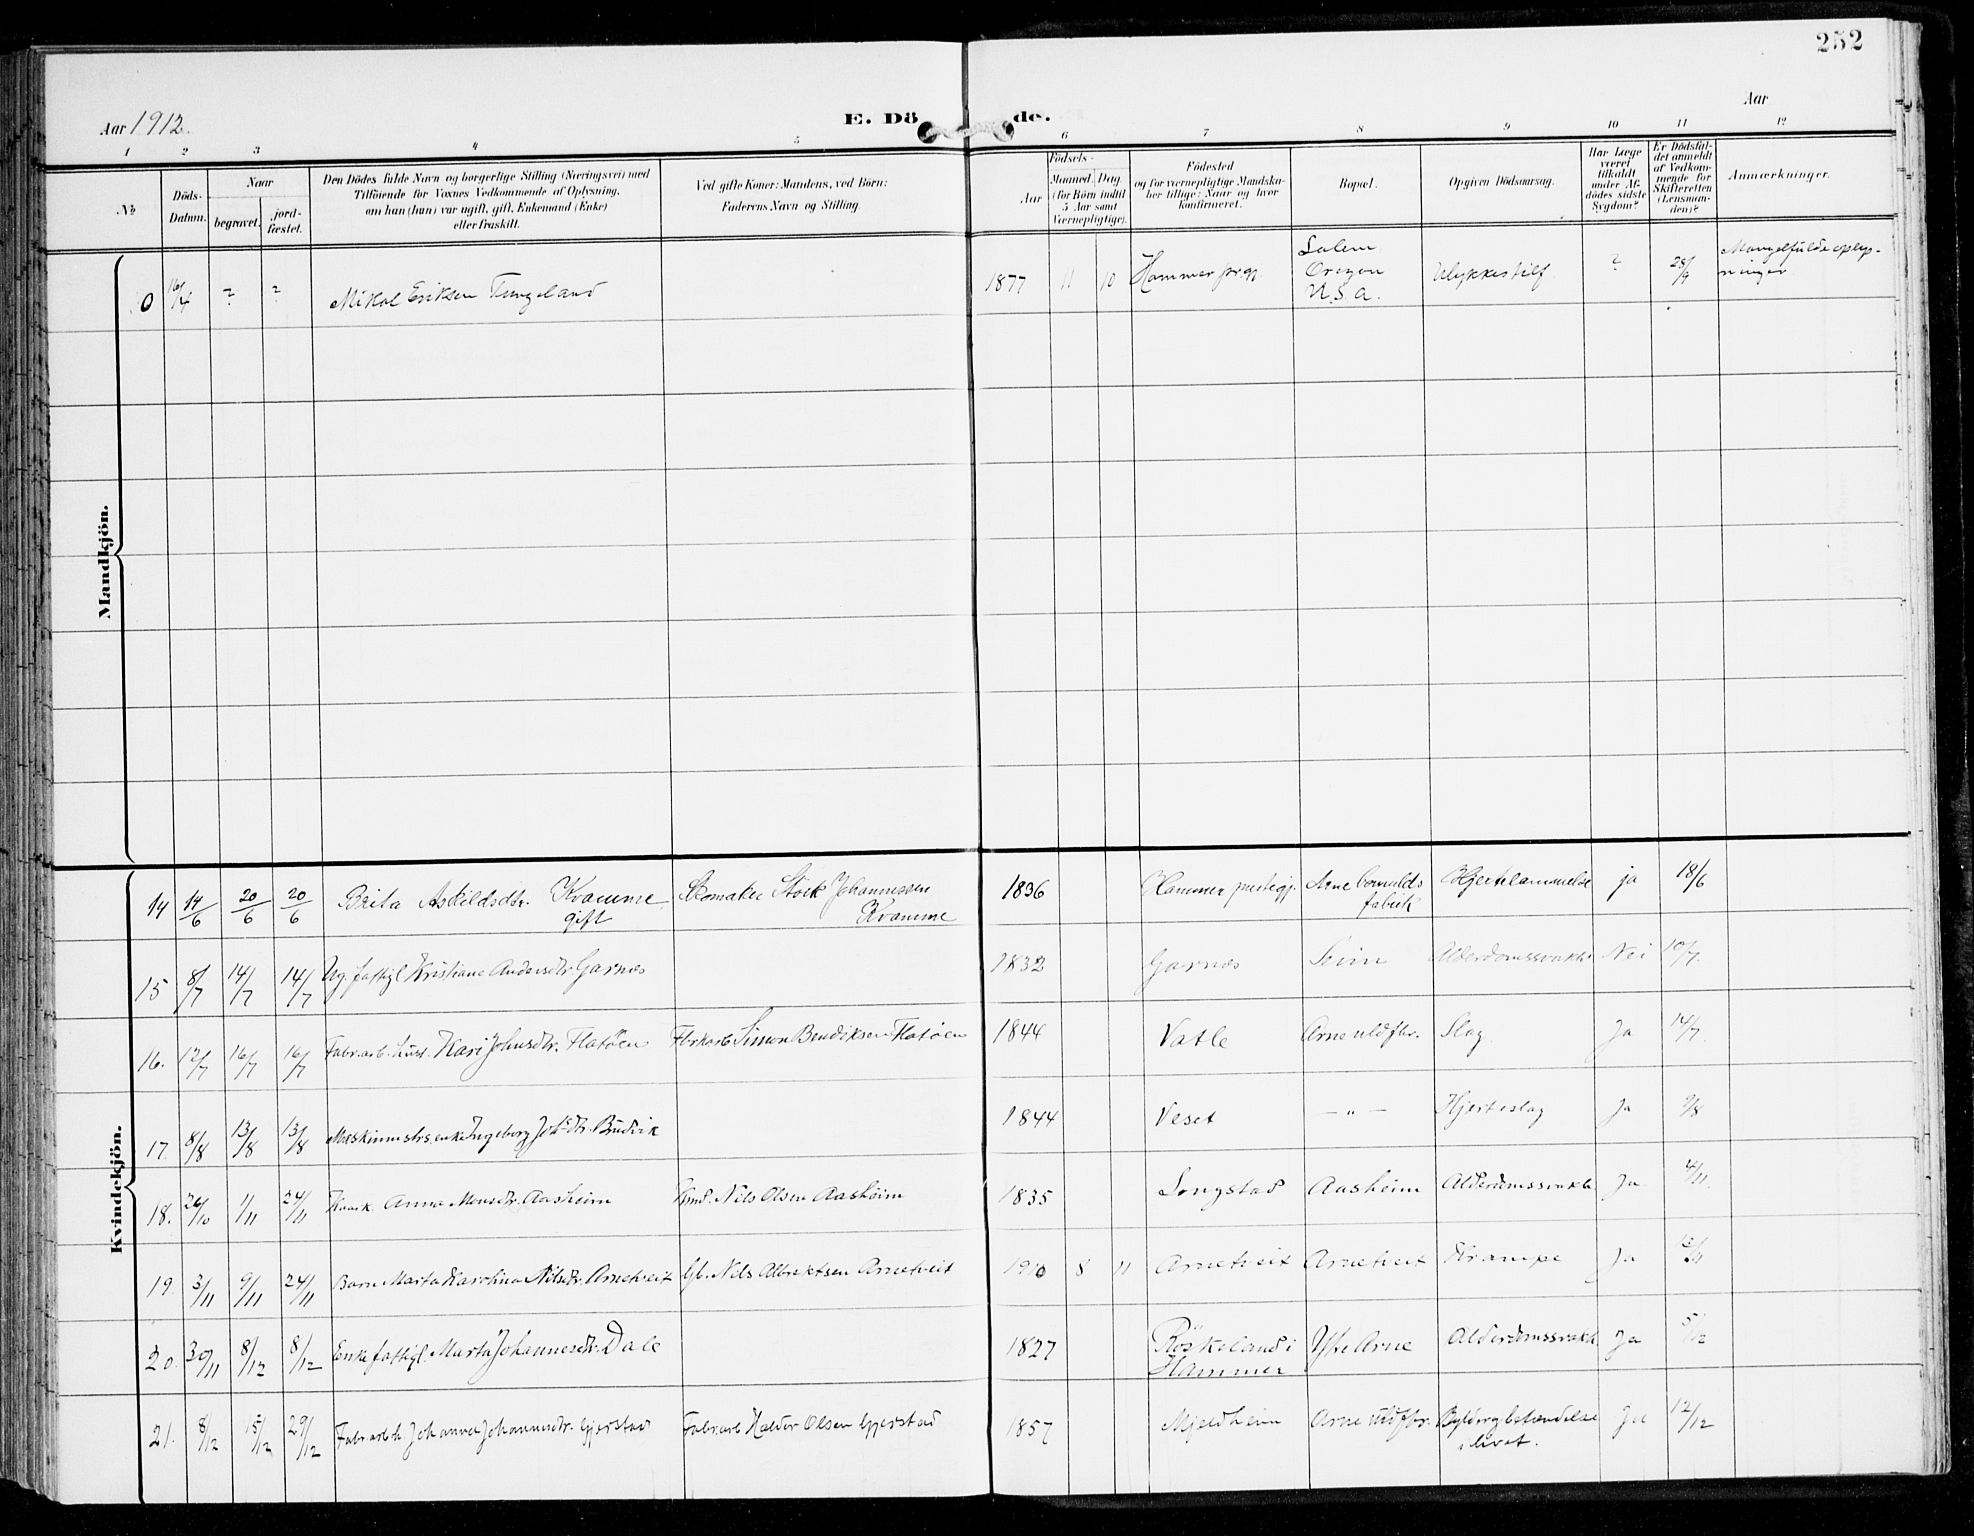 252
Aar 1912.
E. Dö de.
Aar
1 2 3 4 5 6 7 8 9 10 11 12
No
Döds-Datum.
Naar
begravet.
jord-fæstet.
Den Dödes fulde Navn og borgerlige Stilling (Næringsvei) med
Tilföiende for Voxnes Vedkommende af Oplysning,
om han (hun) var ugift, gift, Enkemand (Enke)
eller fraskilt.
Ved gifte Koner: Mandens, ved Börn:
Faderens Navn og Stilling.
Födsels-
Aar
Maaned. Dag
(for Börn indtil
5 Aar samt
Værnepligtige).
Födested
og for værnepligtige Mandska-
ber tillige: Naar og hvor
konfirmeret.
Bopæl.
Opgiven Dödsaarsag.
Har Læge
været
tilkaldt
under Af-
dödes sidste
Sygdom?
Er Dödsfal-
det anmeldt
af Vedkom-
mende for
Skifteretten
(Lensman-
den)?
Anmærkninger.
Mandkjön.
0 16/4 ? ? Mikal Eriksen Tungeland 1877 11 10 Hammer prgj. Salem Oregon U.S.A. Ulykkestilf. ? 28/9 Mangelfulde oplys-ninger
Kvindekjön.
14 14/6 20/6 20/6 Brita Askildsdtr. Kvamme gift Johannessen Kvamme 1836 Hammer prestegj. Arne bomulds fabrik Hjertelammelse ja 18/6
15 8/7 14/7 14/7 Ug. fattigl Kristiane Andersdtr Garnæs 1832 Garnæs Seim Alderdomssvakh. Nei 10/7.
16. 12/7 16/7 16/7 Fabr.arb. hust. Kari Johnsdtr. Flatöen Simon Bendiksen Flatöen 1844 Vatle Arne uldfbr. Slag. Ja 14/7.
17 8/8 13/8 13/8 Maskinmstrs.enke Ingeborg Joh.dtr. Brudvik 1844 Veset – " – Hjerteslag Ja 9/8
18. 26/10 1/11 24/11 Anna Monsdtr. Aasheim Nils Olsen Aasheim 1835 Songstad Aasheim Alderdomssvakh. Ja 4/11.
19. 3/11 9/11 24/11 Barn Marta Karolina Nilsdtr. Arnetveit Gb. Nils Albrektsen Arnetveit 1910 8 11 Arnetveit Arnetveit Krampe Ja
20. 30/11 8/12 8/12 Enke fattigl. Marta Johannesdtr. Dale 1827 Röskeland i Hammer Ytre Arne Alderdomssvakh. Ja 5/12
21. 8/12 15/12 29/12 Fabr.arb.h. Johanna Johannesdtr. Gjerstad Fabr.arb Haldor Olsen Gjerstad 1857 Mjeldheim Arne Uldfbr. Byldorgbetændelse i livet. Ja 12/12